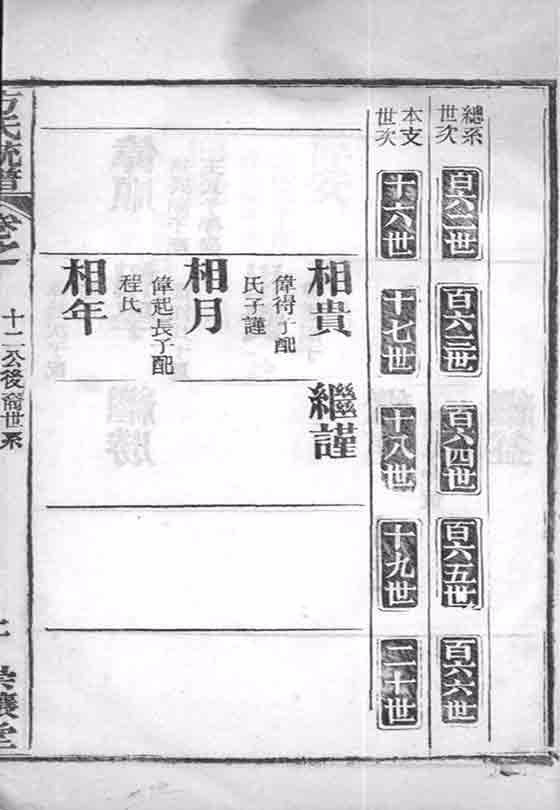 總系
世次
百六二世
百六三世
百六四世
百六五世
百六六世
本支
世次
十六世
十七世
十八世
十九世
二十世
相貴
偉得子配
氏子謹
繼謹
相月
偉起長子配
程氏
相年
方氏統譜
卷之
十二公後裔世系
堂